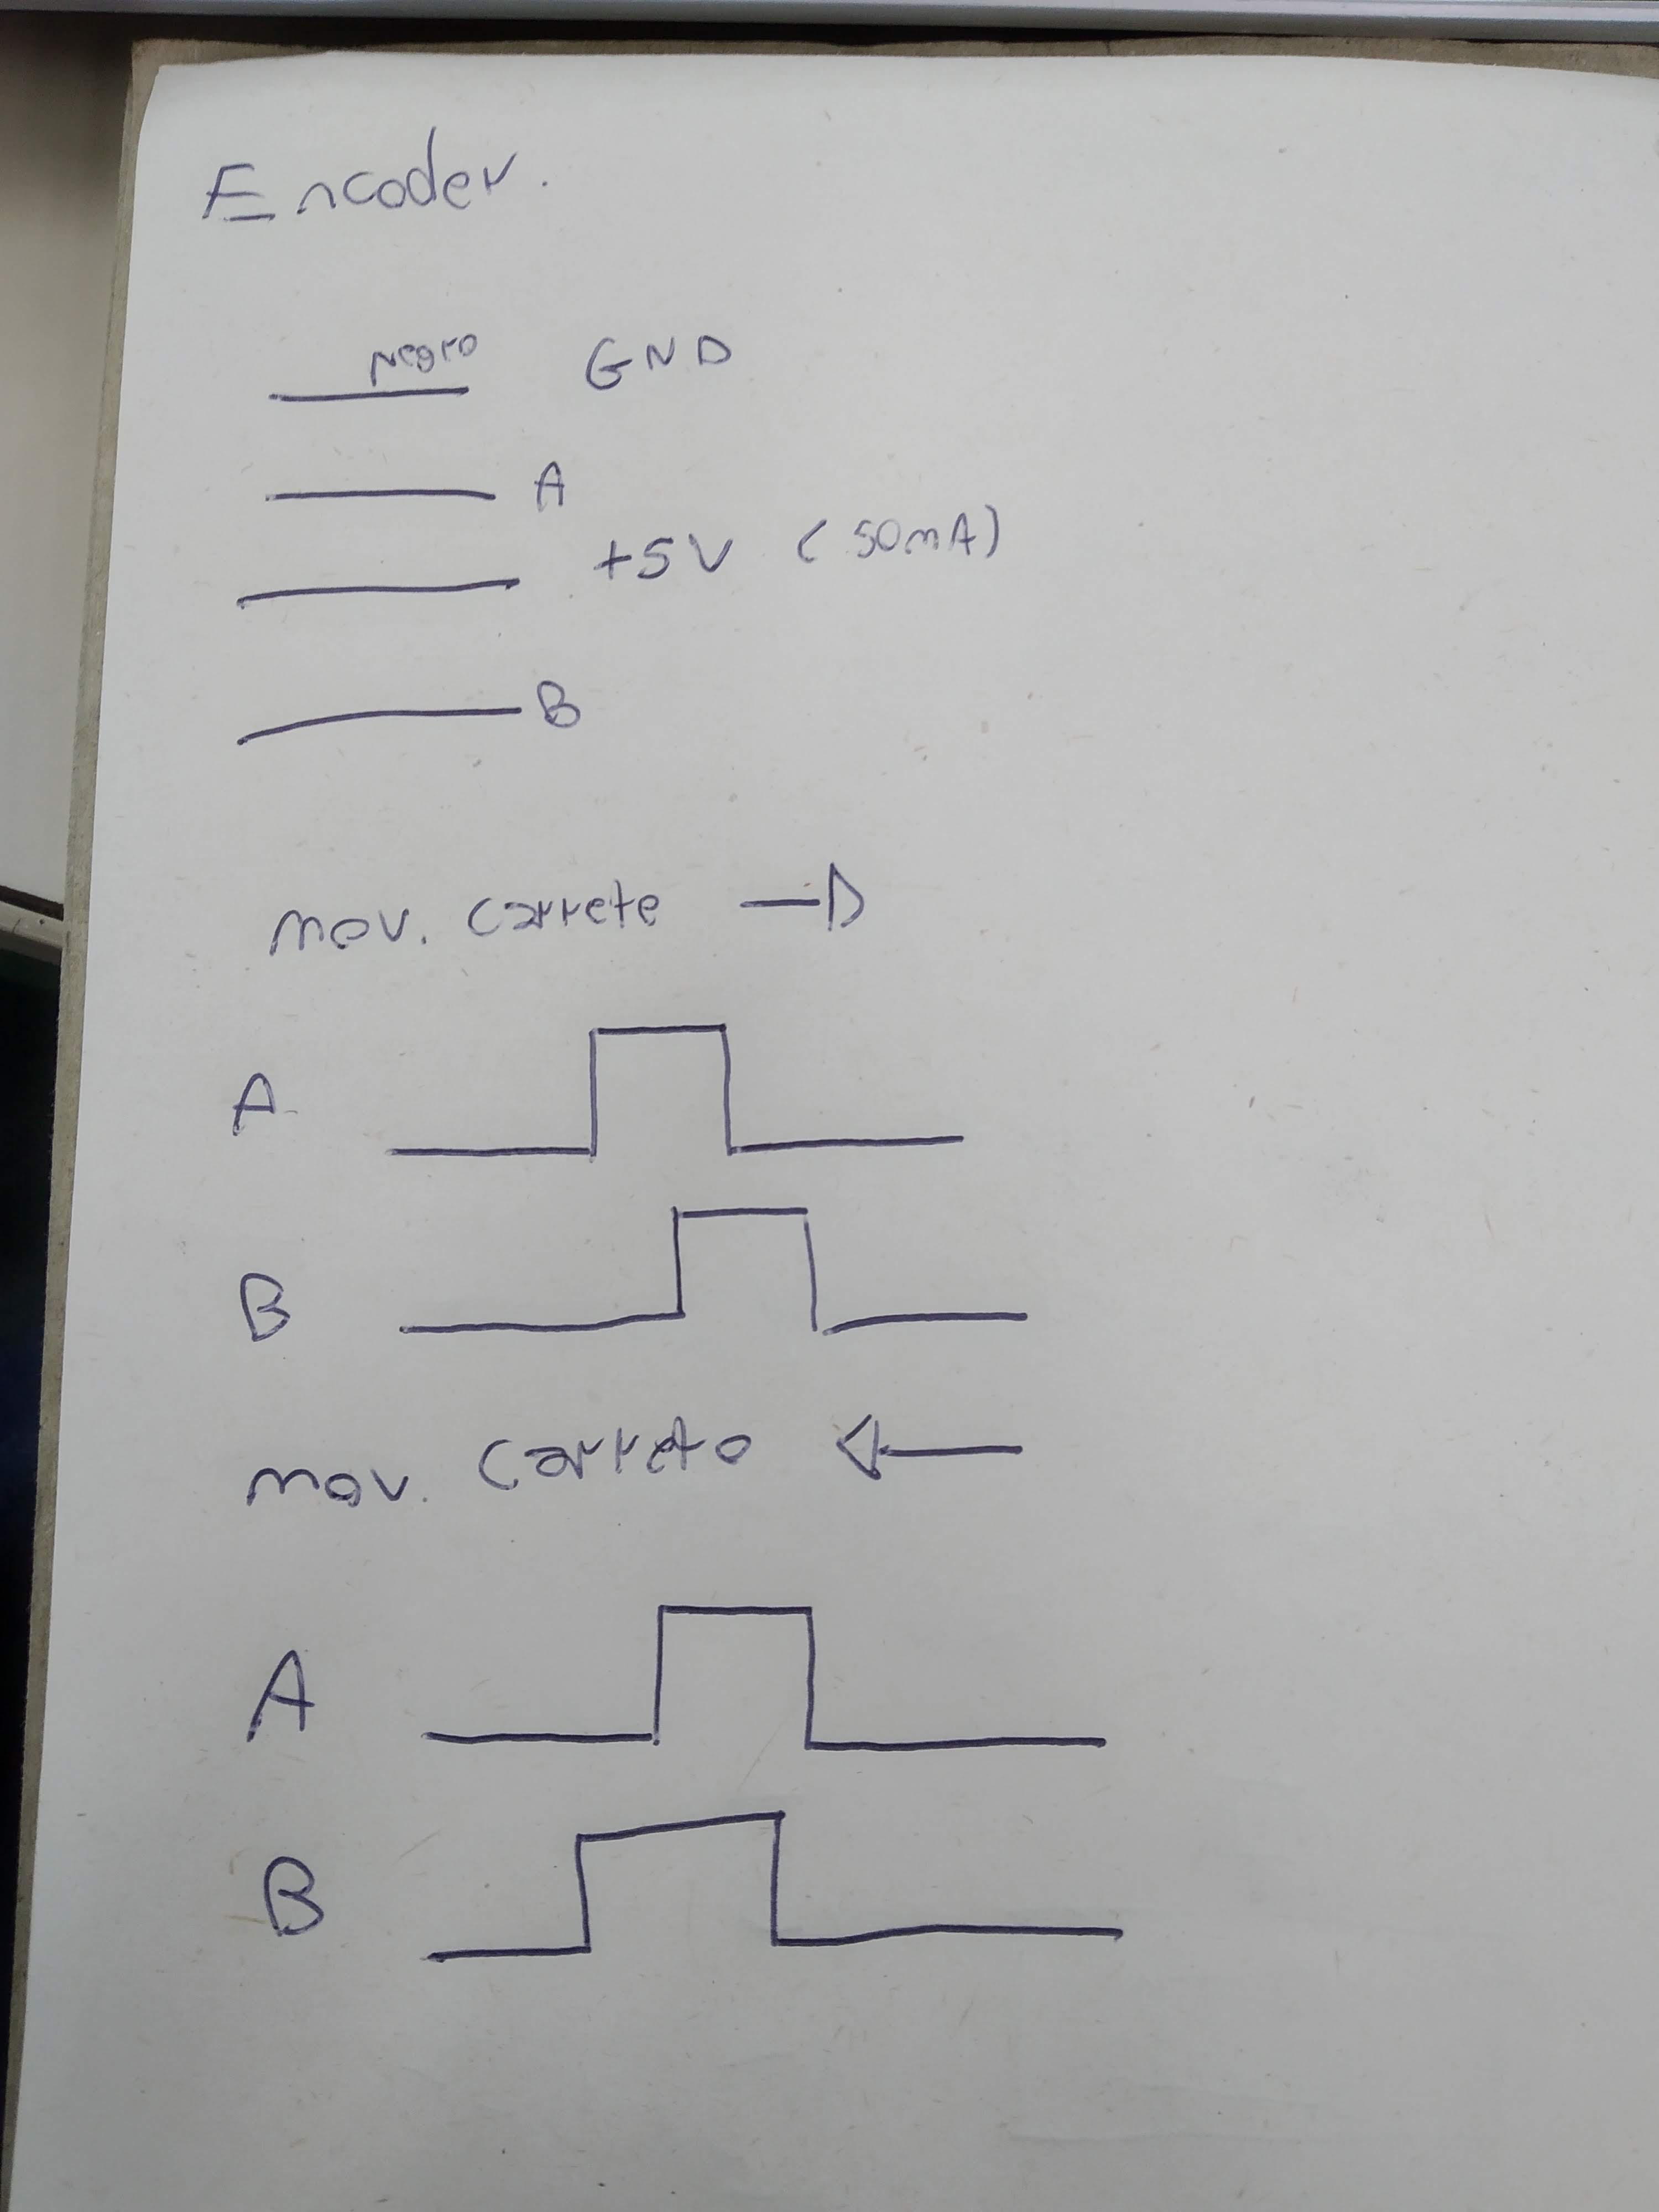 Encoder.
negro GND
A
+5V (50mA)
B
mov. carrete
A
B
mov. carreto
A
B